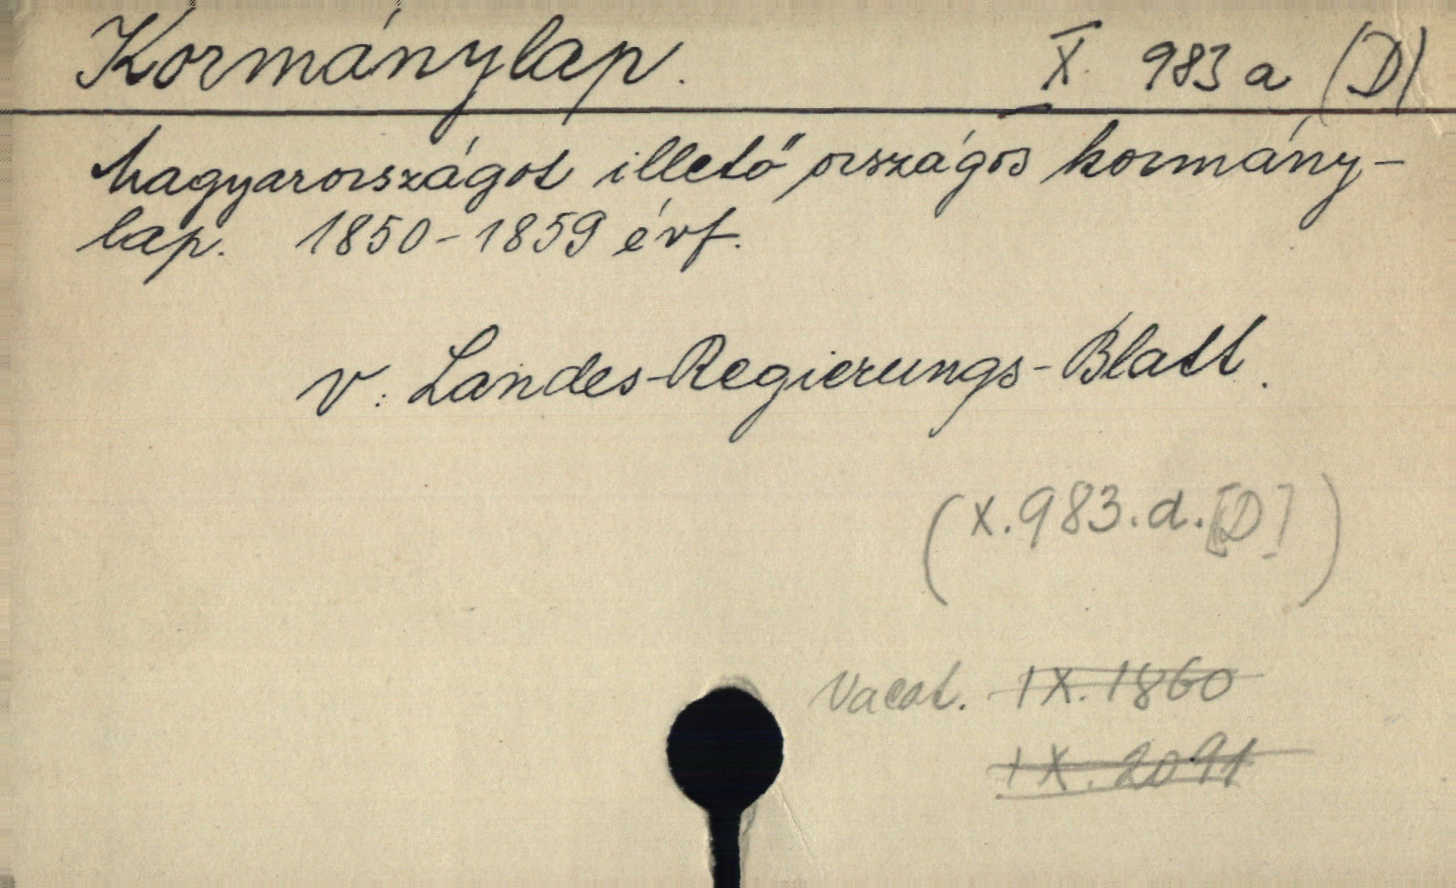 Kormánylap. X. 983 a (D)
Magyarországot illető országos kormány-
lap. 1850-1859 évf.
v. Landes-Regierungs-Blatt.
(X.983.d.[D])
Vacat. IX.1860
IX.2091